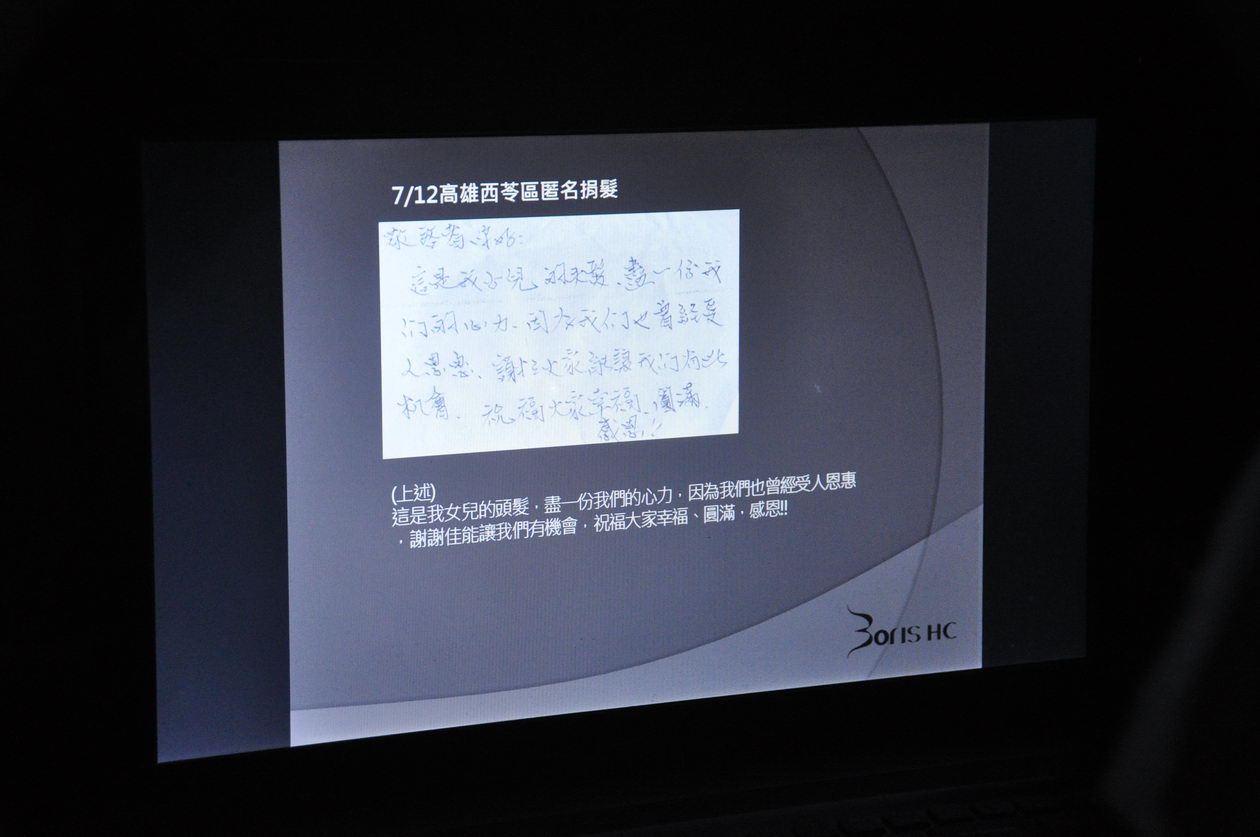 7/12高雄西苓區匿名捐髮
敬啓者您好:
這是我女兒的头髮、盡一份我
们的心力、因為我们也曾經受
人恩惠、謝大家能讓我们有此
机會、祝福大家幸福、圓滿.
感恩!!
(上述)
這是我女兒的頭髮，盡一份我們的心力，因為我們也曾經受人恩惠
，謝謝佳能讓我們有機會，祝福大家幸福、圓滿，感恩!!
Boris HC